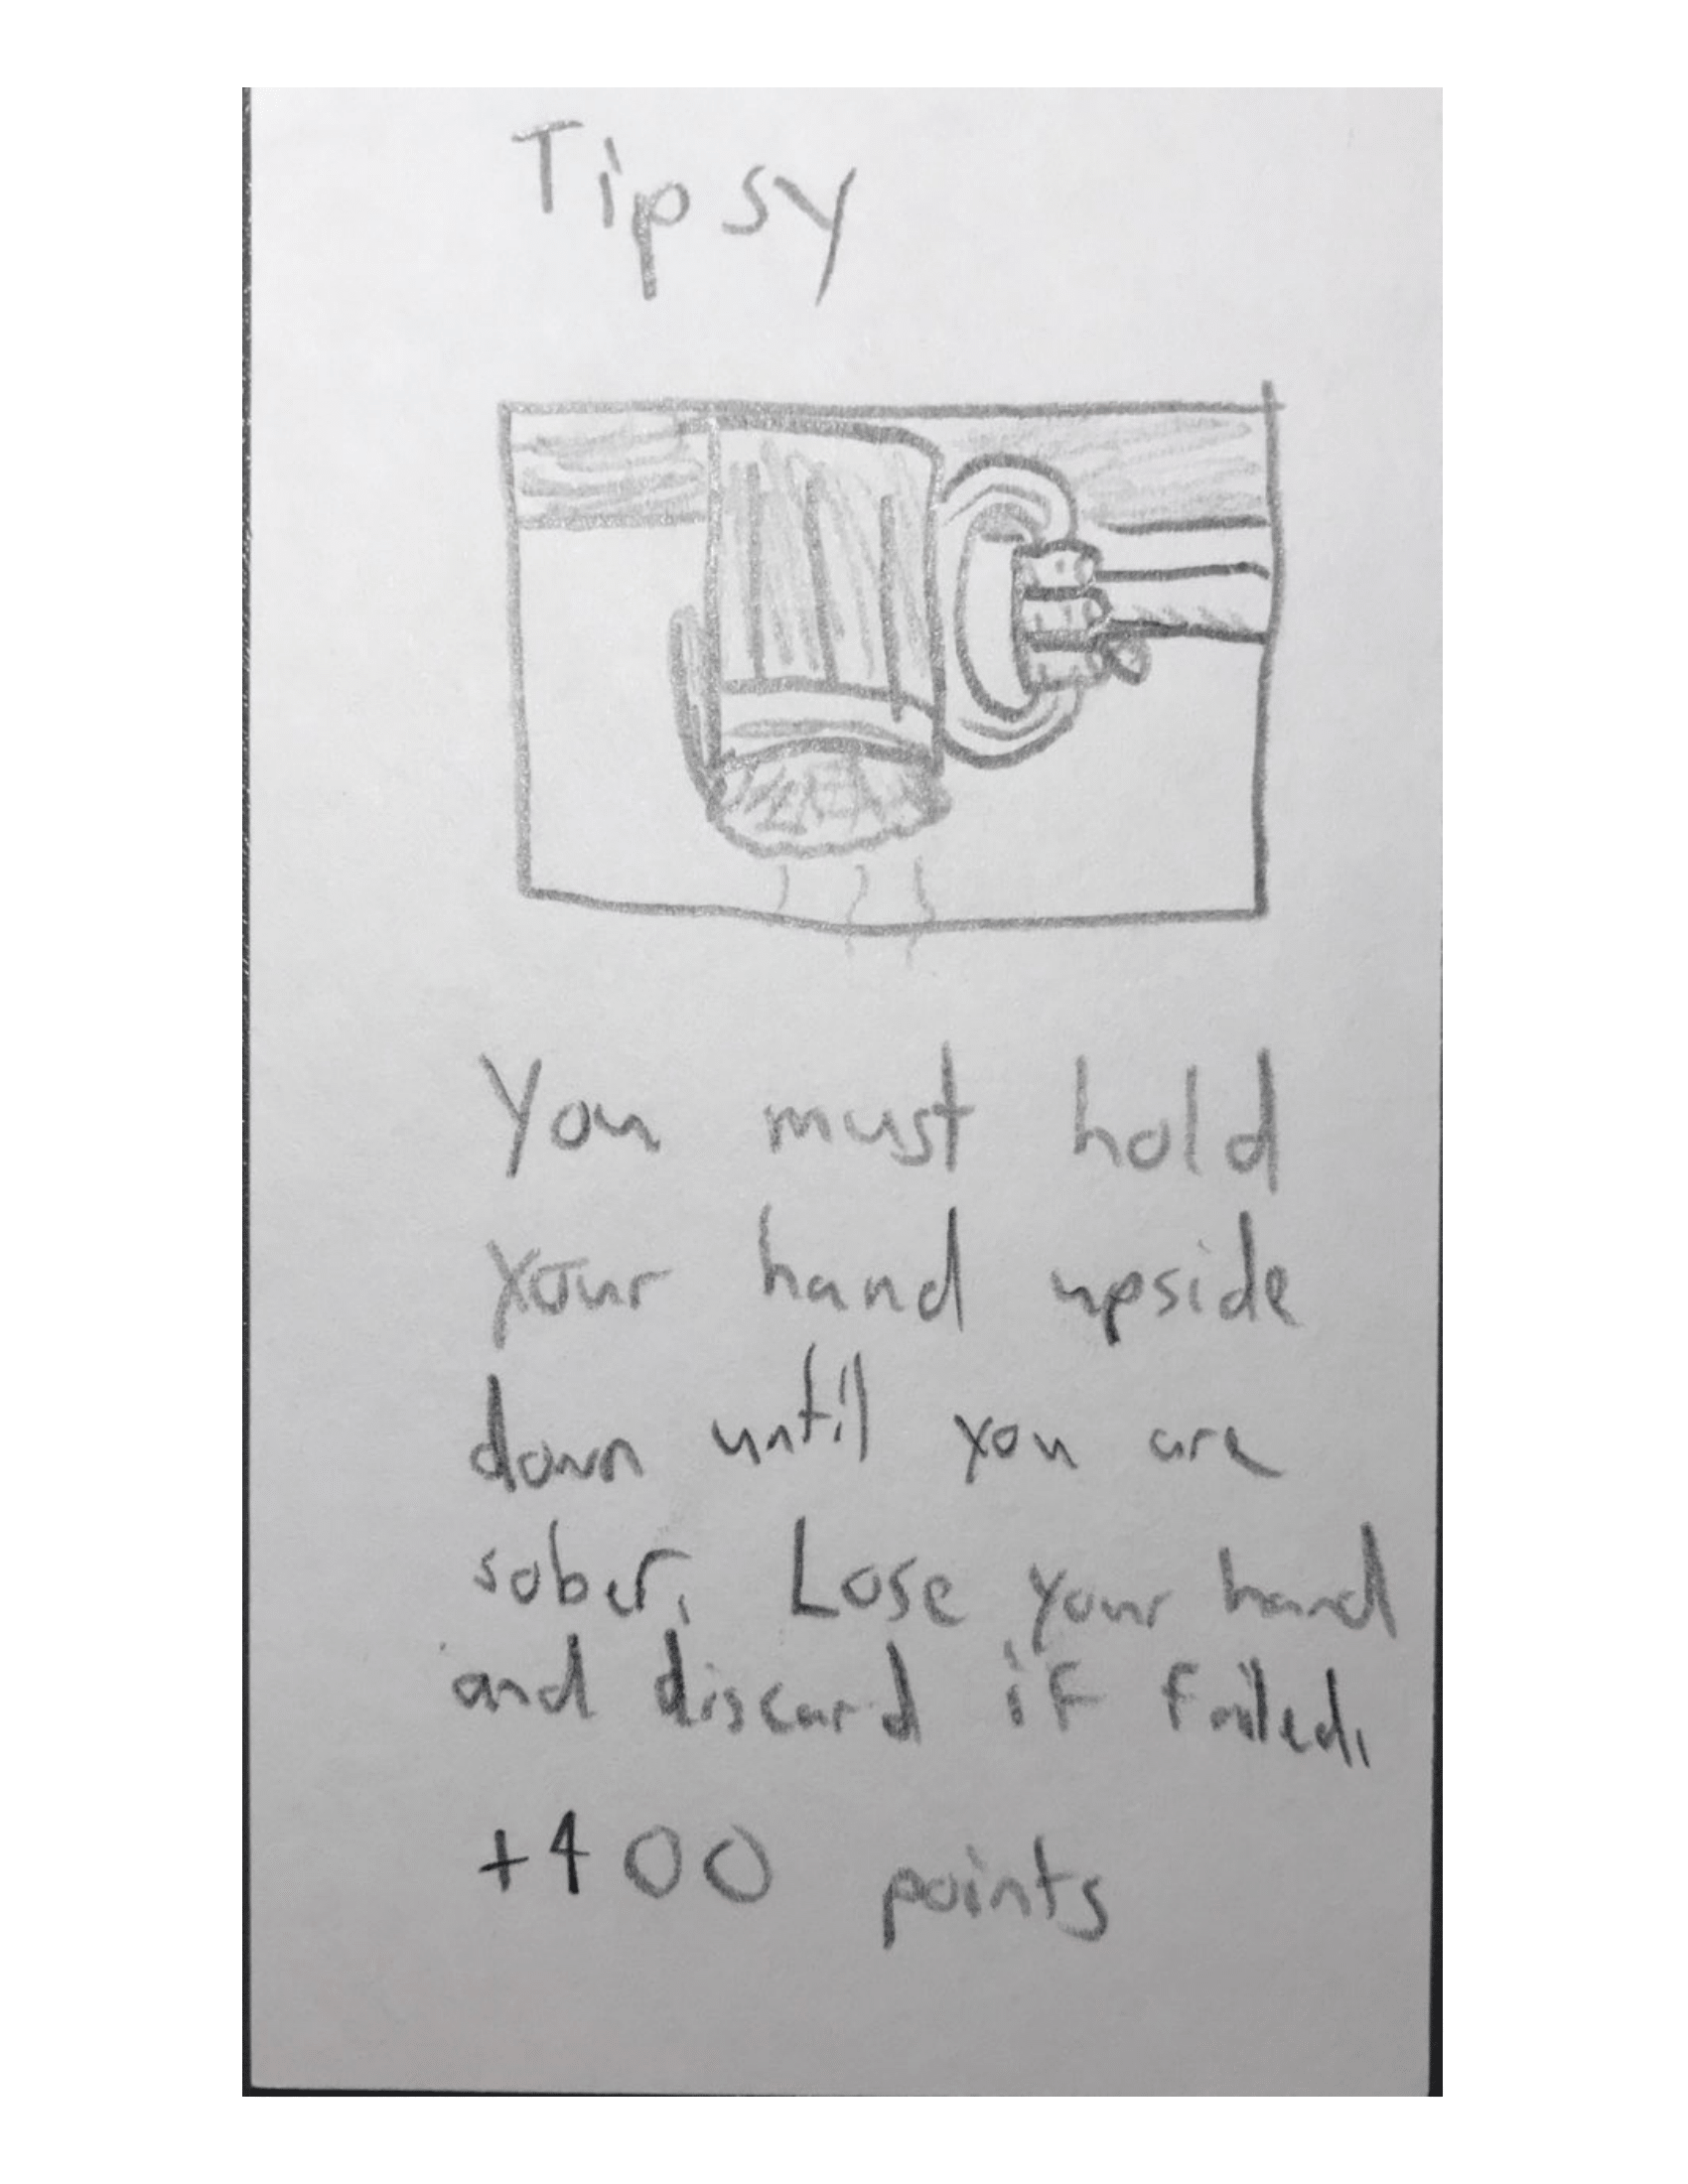 Tipsy
You must hold
your hand upside
down until you are
sober. Lose your hand
and discard if failed.
+400 points